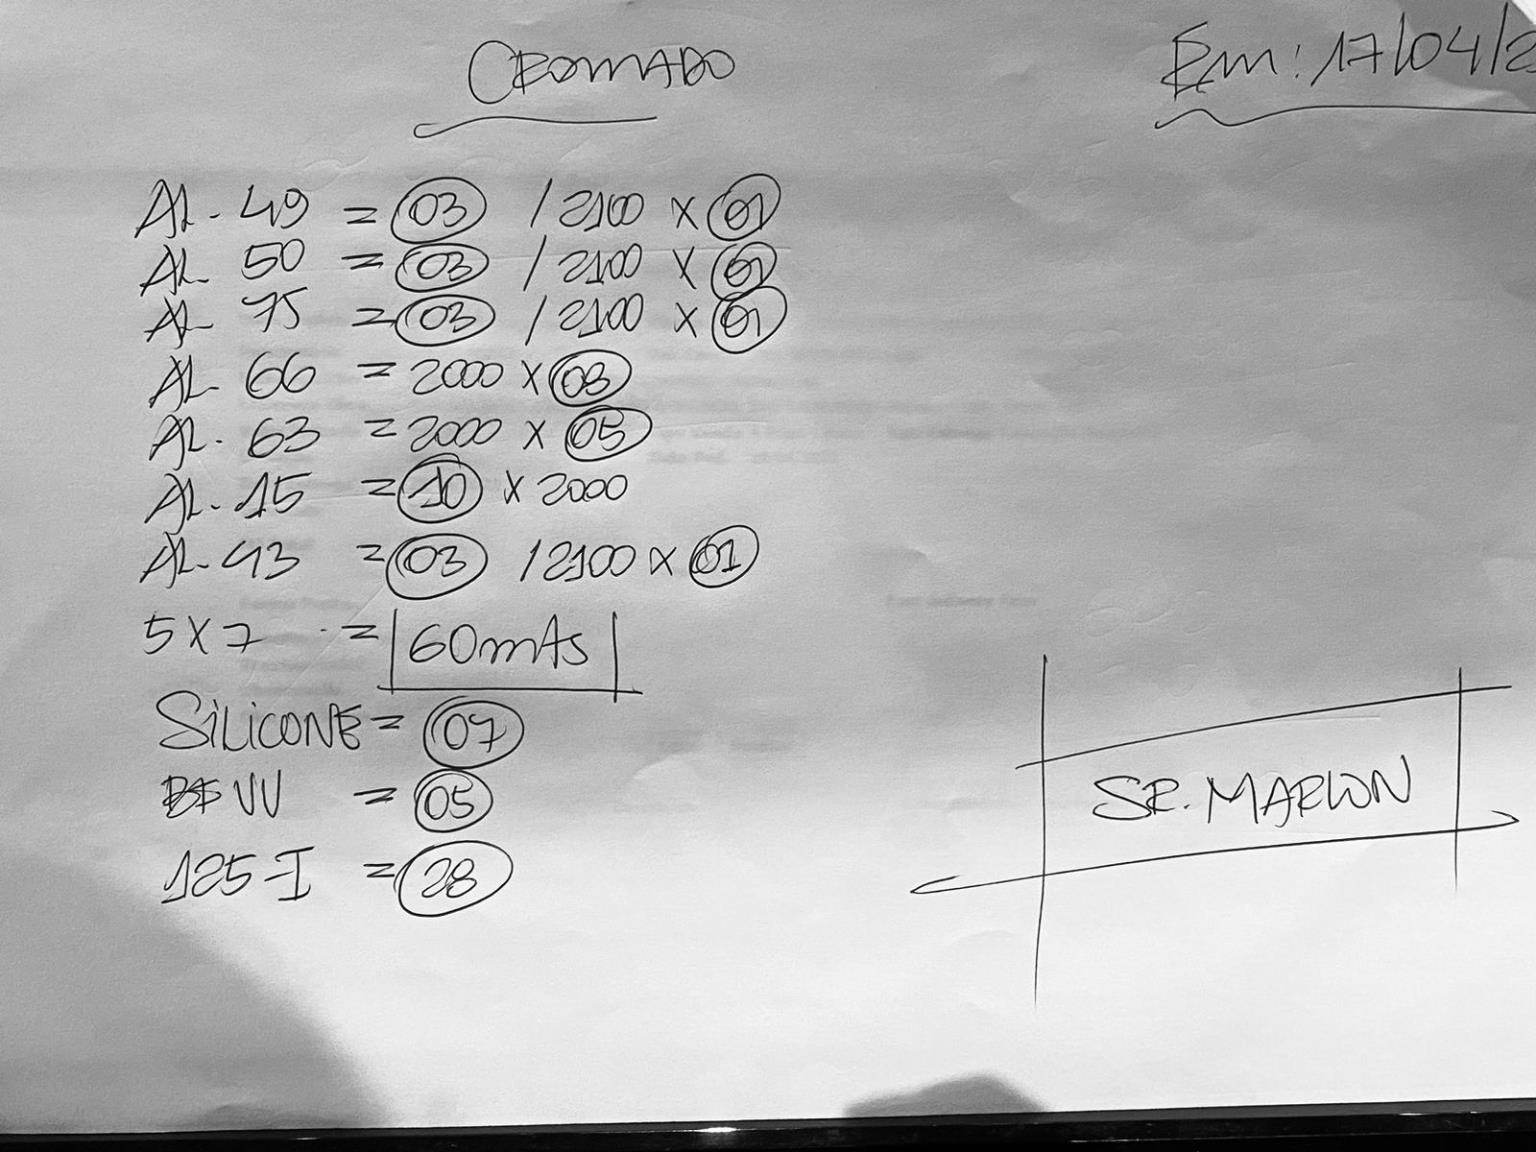 CROMADO
Em: 17/04/2
AL- 49 = 03 / 2100 x 01
AL 50 = 03 / 2100 x 01
AL 75 = 03 / 2100 x 01
AL 66 = 2000 x 03
AL. 63 = 2000 x 05
AL. 15 = 10 x 2000
AL- 43 = 03 / 2100 x 01
5 X 7 = 60mAs
SiLiCONE = 07
VV = 05
125-I = 28
SR. MARLON